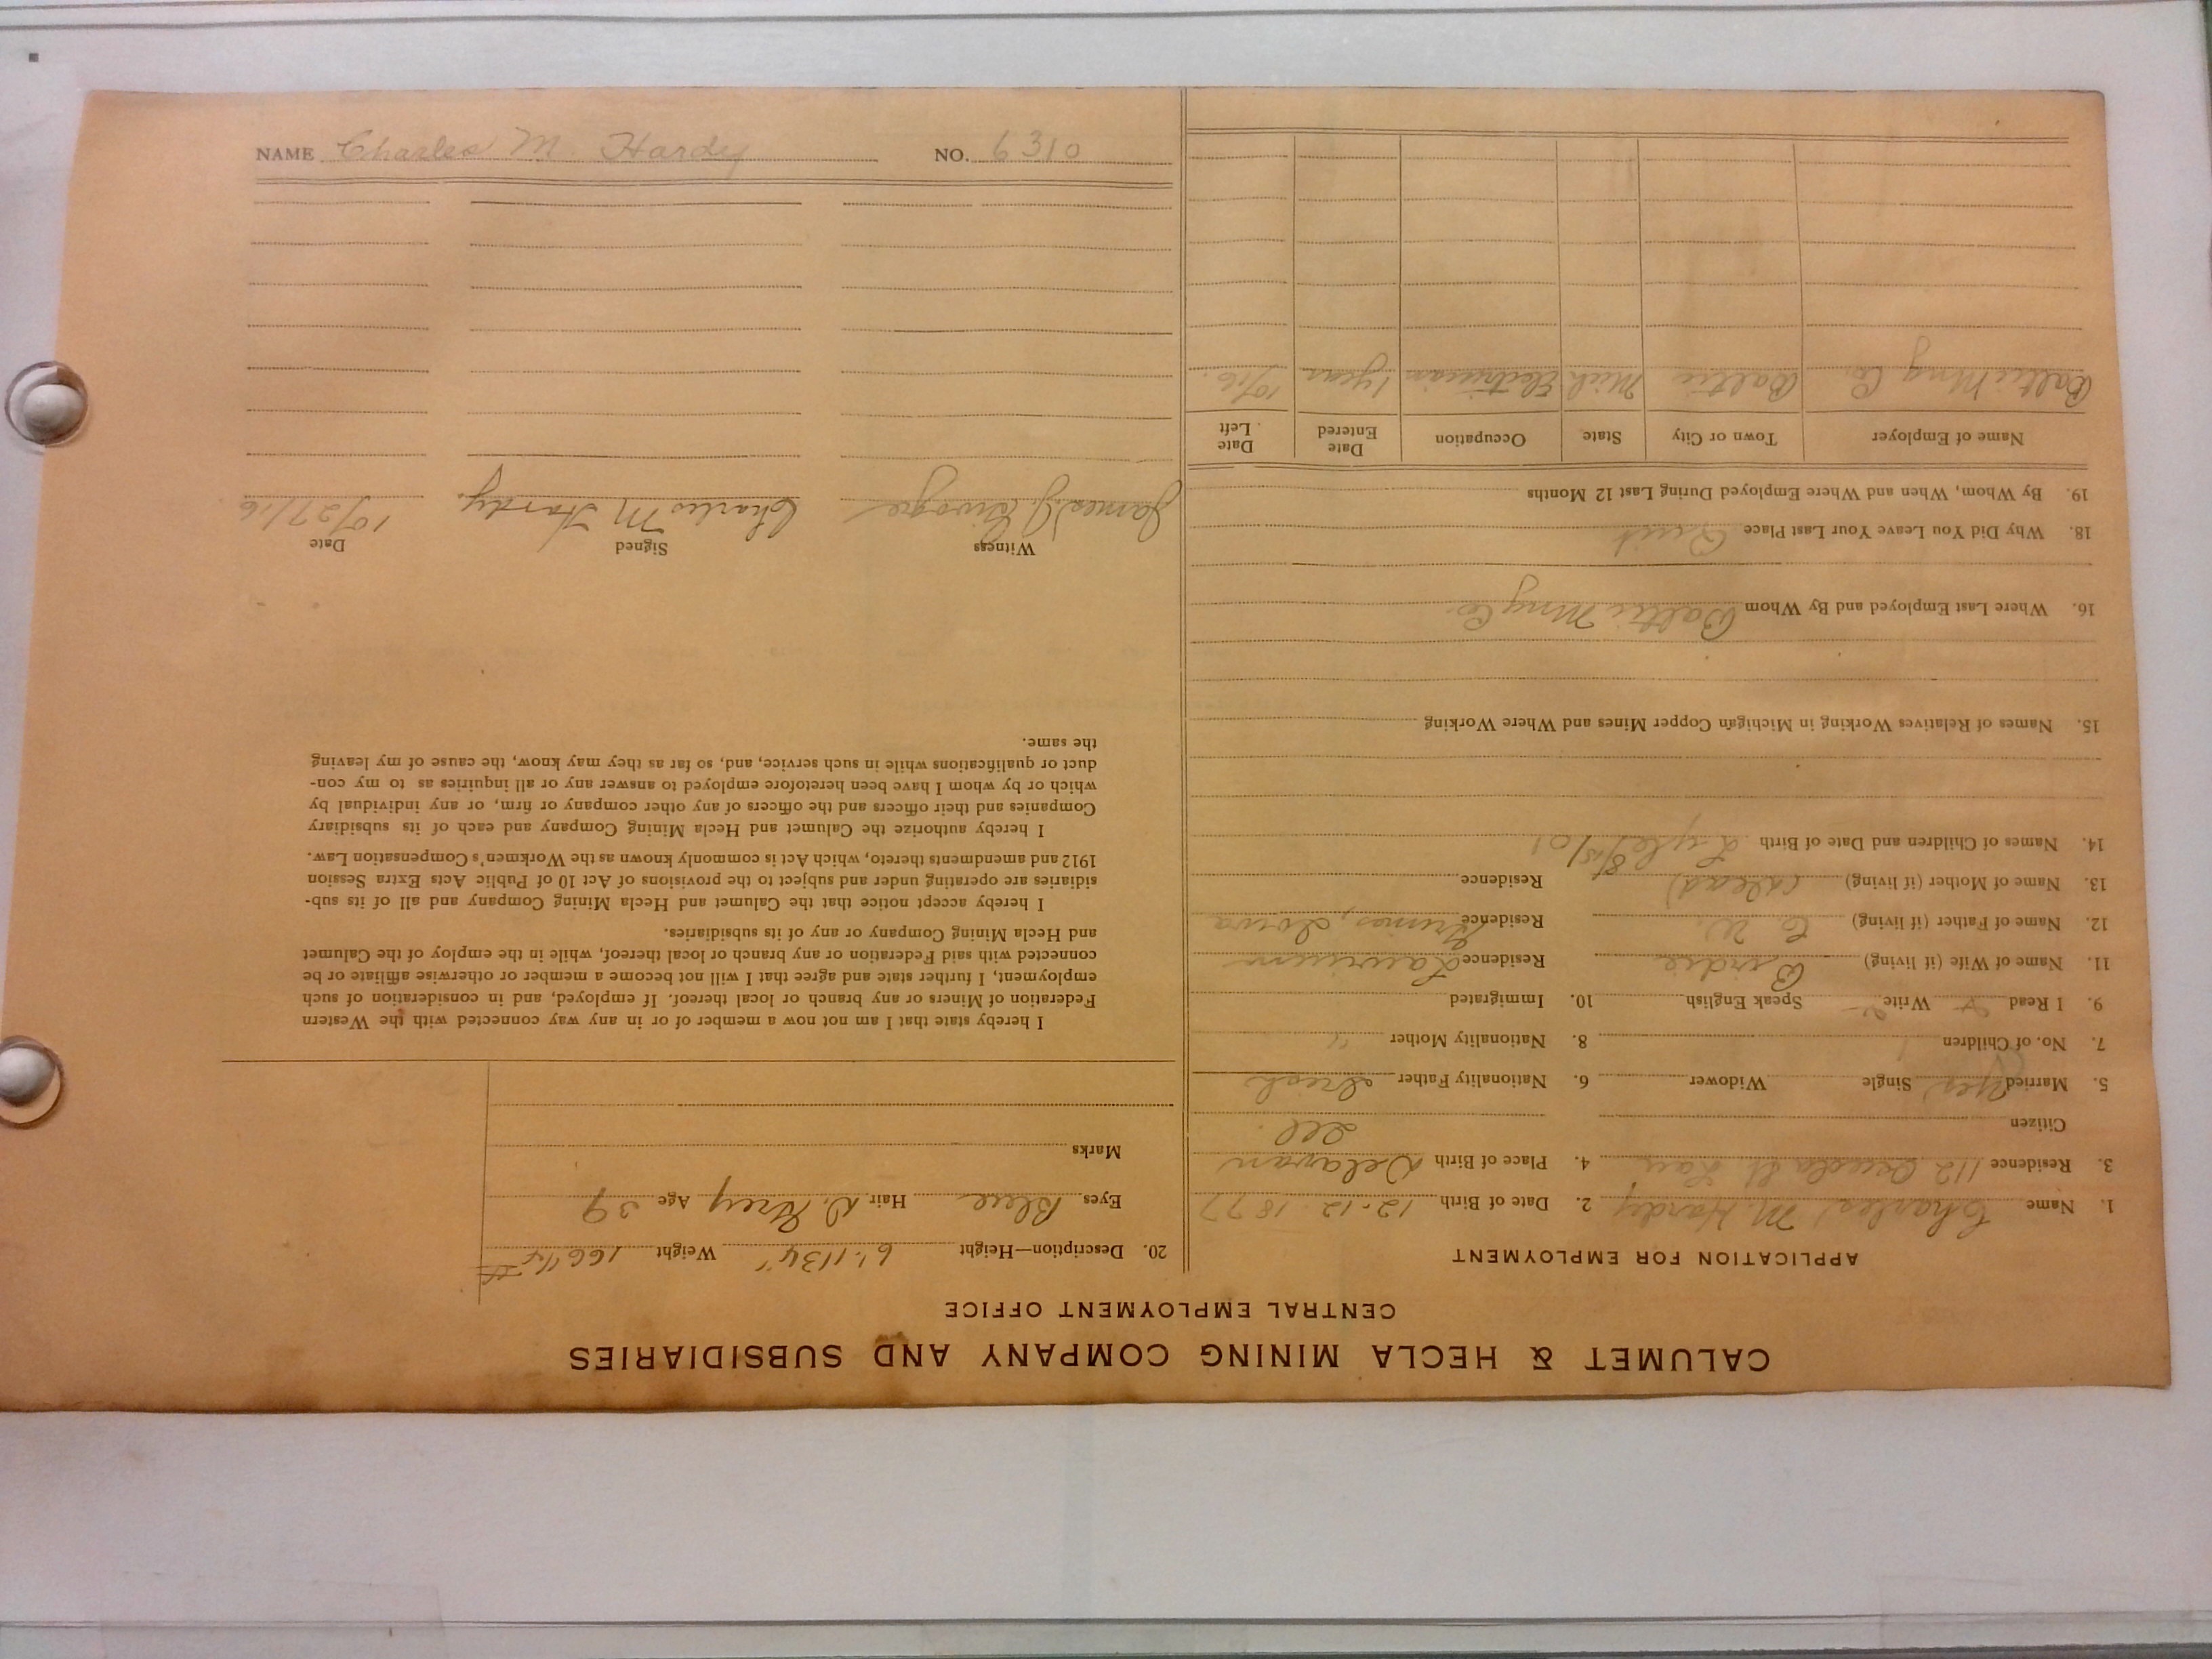 CALUMET & HECLA MINING COMPANY AND SUBSIDIARIES
CENTRAL EMPLOYMENT OFFICE
APPLICATION FOR EMPLOYMENT
1. Name Charles M. Hardy 2. Date of Birth 12-12-1877
3. Residence 112 St Lau 4. Place of Birth Delavan
Ill
Citizen
5. Married Yes Single Widower 6. Nationality Father
7. No. of Children 1 8. Nationality Mother "
9. I Read Write Speak English 10. Immigrated
11. Name of Wife (if living) Birdie Residence Laurium
12. Name of Father (if living) C. W. Residence Grimes, Iowa
13. Name of Mother (if living) (dead) Residence
14. Names of Children and Date of Birth Lyle 8/15/01
15. Names of Relatives Working in Michigan Copper Mines and Where Working
16. Where Last Employed and By Whom Baltic Mng Co.
18. Why Did You Leave Your Last Place Quit
19. By Whom, When and Where Employed During Last 12 Months
Name of Employer Town or City State Occupation Date Entered Date Left
Baltic Mng Co. Baltic Mich Electrician 1 year 10/16.
20. Description—Height 6'-1 1/3/4" Weight 166 1/2 #
Eyes Blue Hair D. Grey Age 39
Marks
I hereby state that I am not now a member of or in any way connected with the Western
Federation of Miners or any branch or local thereof. If employed, and in consideration of such
employment, I further state and agree that I will not become a member or otherwise affiliate or be
connected with said Federation or any branch or local thereof, while in the employ of the Calumet
and Hecla Mining Company or any of its subsidiaries.
I hereby accept notice that the Calumet and Hecla Mining Company and all of its sub-
sidiaries are operating under and subject to the provisions of Act 10 of Public Acts Extra Session
1912 and amendments thereto, which Act is commonly known as the Workmen's Compensation Law.
I hereby authorize the Calumet and Hecla Mining Company and each of its subsidiary
Companies and their officers and the officers of any other company or firm, or any individual by
which or by whom I have been heretofore employed to answer any or all inquiries as to my con-
duct or qualifications while in such service, and, so far as they may know, the cause of my leaving
the same.
Witness Signed Date
James J. Charles M Hardy. 10/27/16
NAME Charles M. Hardy NO. 6310